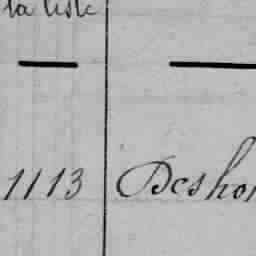 la liste
1113 Deshon